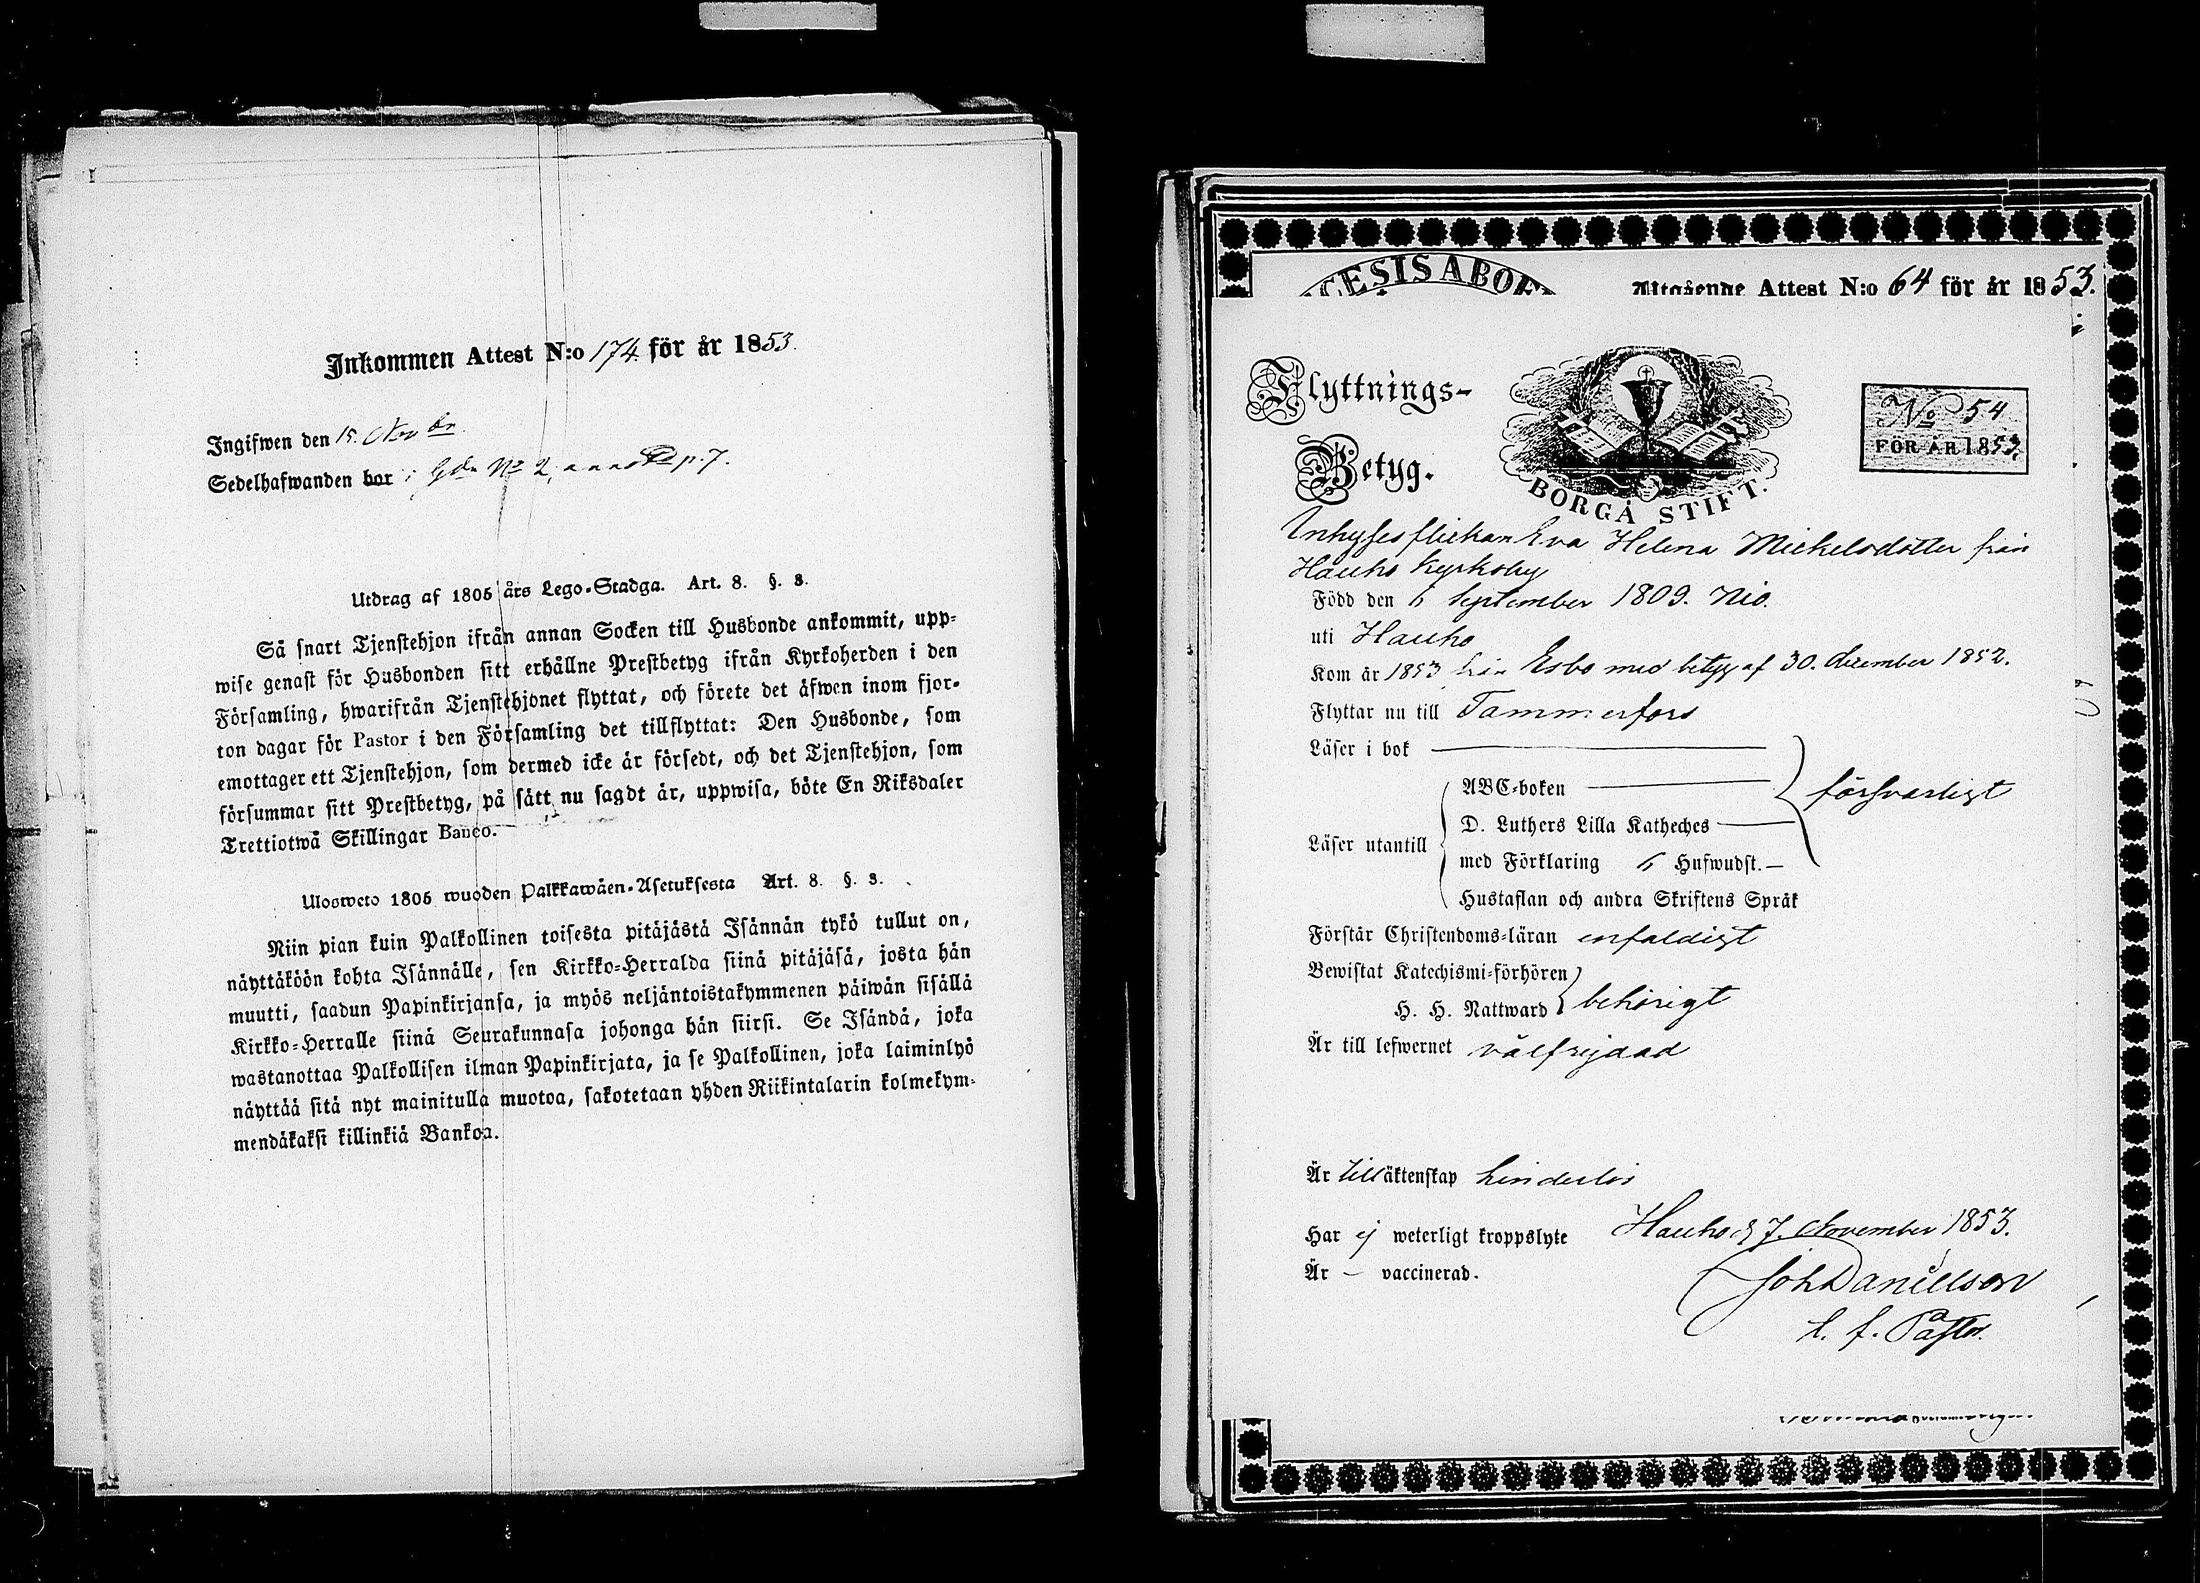 Inkommen Attest N:o 174. för år 1853.
Ingifwen den 15. Nov br.
Sedelhafwanden bor i Gdn No 2, p. 7.
Utdrag af 1805 års Lego-Stadga. Art. 8. §. 3.
Så snart Tjenstehjon ifrån annan Socken till Husbonde ankommit, upp-
wise genast för Husbonden sitt erhållne Prestbetyg ifrån Kyrkoherden i den
Församling, hwarifrån Tjenstehjonet flyttat, och förete det äfwen inom fjor-
ton dagar för Pastor i den Församling det tillflyttat: Den Husbonde, som
emottager ett Tjenstehjon, som dermed icke är försedt, och det Tjenstehjon, som
försummar sitt Prestbetyg, på sätt nu sagdt är, uppwisa, böte En Riksdaler
Trettiotwå Skillingar Banco.
Ulosweto 1805 wuoden Palkkawäen-Asetuksesta Art. 8. §. 3.
Niin pian kuin Palkollinen toisesta pitäjästä Isännän tykö tullut on,
näyttäköön kohta Isännälle, sen Kirkko-Herralda siinä pitäjäsä, josta hän
muutti, saadun Papinkirjansa, ja myös neljäntoistakymmenen päiwän sisällä
Kirkko-Herralle siinä Seurakunnasa johonga hän siirsi. Se Isändä, joka
wastanottaa Palkollisen ilman Papinkirjata, ja se Palkollinen, joka laiminlyö
näyttää sitä nyt mainitulla muotoa, sakotetaan yhden Riikintalarin kolmekym-
mendäkaksi killinkiä Bankoa.
CESIS ABOE
Utgående Attest N:o 64 för år 1853.
Flyttnings-
Betyg.
BORGÅ STIFT.
No 54
FÖR ÅR 1853.
Inhysesflickan Eva Helena Mickelsdotter från
Hauho Kyrkoby
Född den 6 September 1809. Nio.
uti Hauho
Kom år 1853 från Esbo med betyg af 30. december 1852.
Flyttar nu till Tammerfors
Läser i bok
ABC-boken
försvarligt
D. Luthers Lilla Katheches
Läser utantill
med Förklaring 6 Hufwudst.
Hustaflan och andra Skriftens Språk
Förstår Christendoms-läran enfaldigt
Bewistat Katechismi-förhören
H. H. Nattward behörigt
Är till lefwernet välfrejdad
Är till äktenskap hinderlös
Har ej weterligt kroppslyte Hauho d 7. November 1853.
Är - vaccinerad.
Joh Danielson
t. f. Pastor.